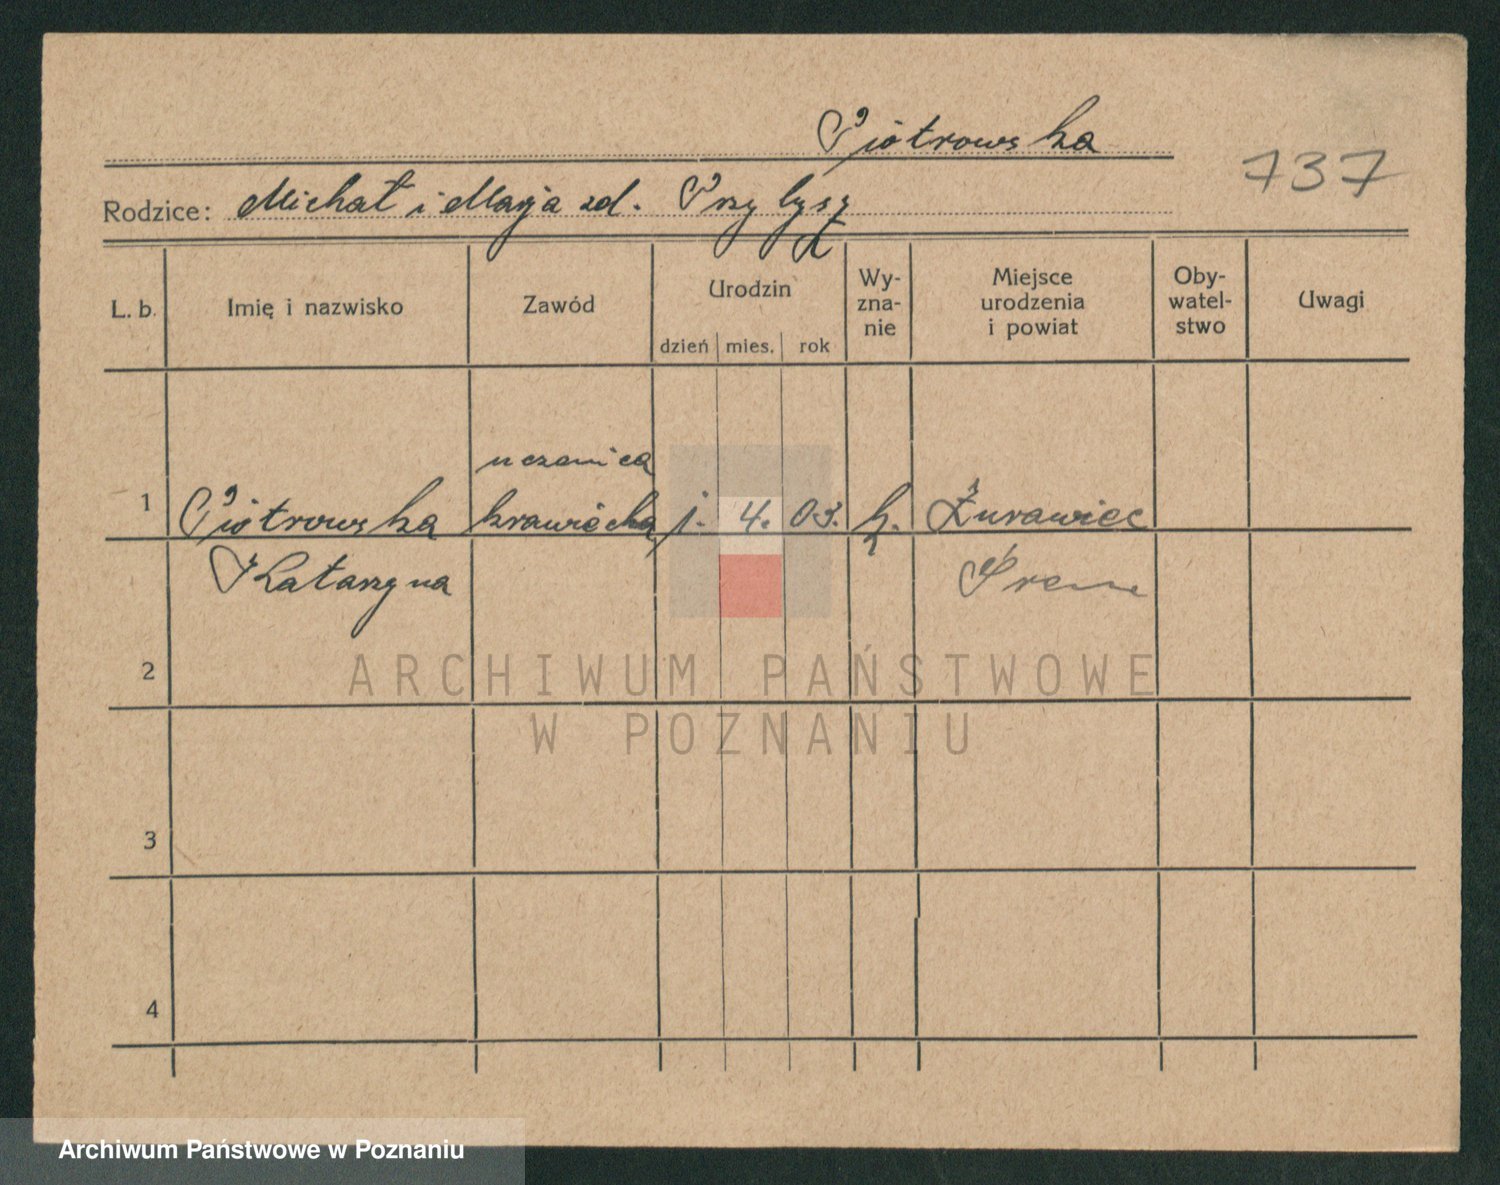 Piotrowska
737
Rodzice: Michał i Marja zd. Przybysz
L. b. Imię i nazwisko Zawód Urodzin dzień mies. rok Wy-zna-nie Miejsce urodzenia i powiat Oby-watel-stwo Uwagi
uczenica
1 Piotrowska krawiecka 1. 4. 03. k. Żurawiec
Katarzyna
2
3
4
ARCHIWUM PAŃSTWOWE
W POZNANIU
Archiwum Państwowe w Poznaniu